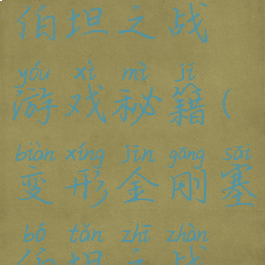 伯坦之战
yóu xì mì jí
游戏秘籍(
biàn xíng jīn gāng sāi
变形金刚塞
bó tǎn zhī zhàn
伯坦之战